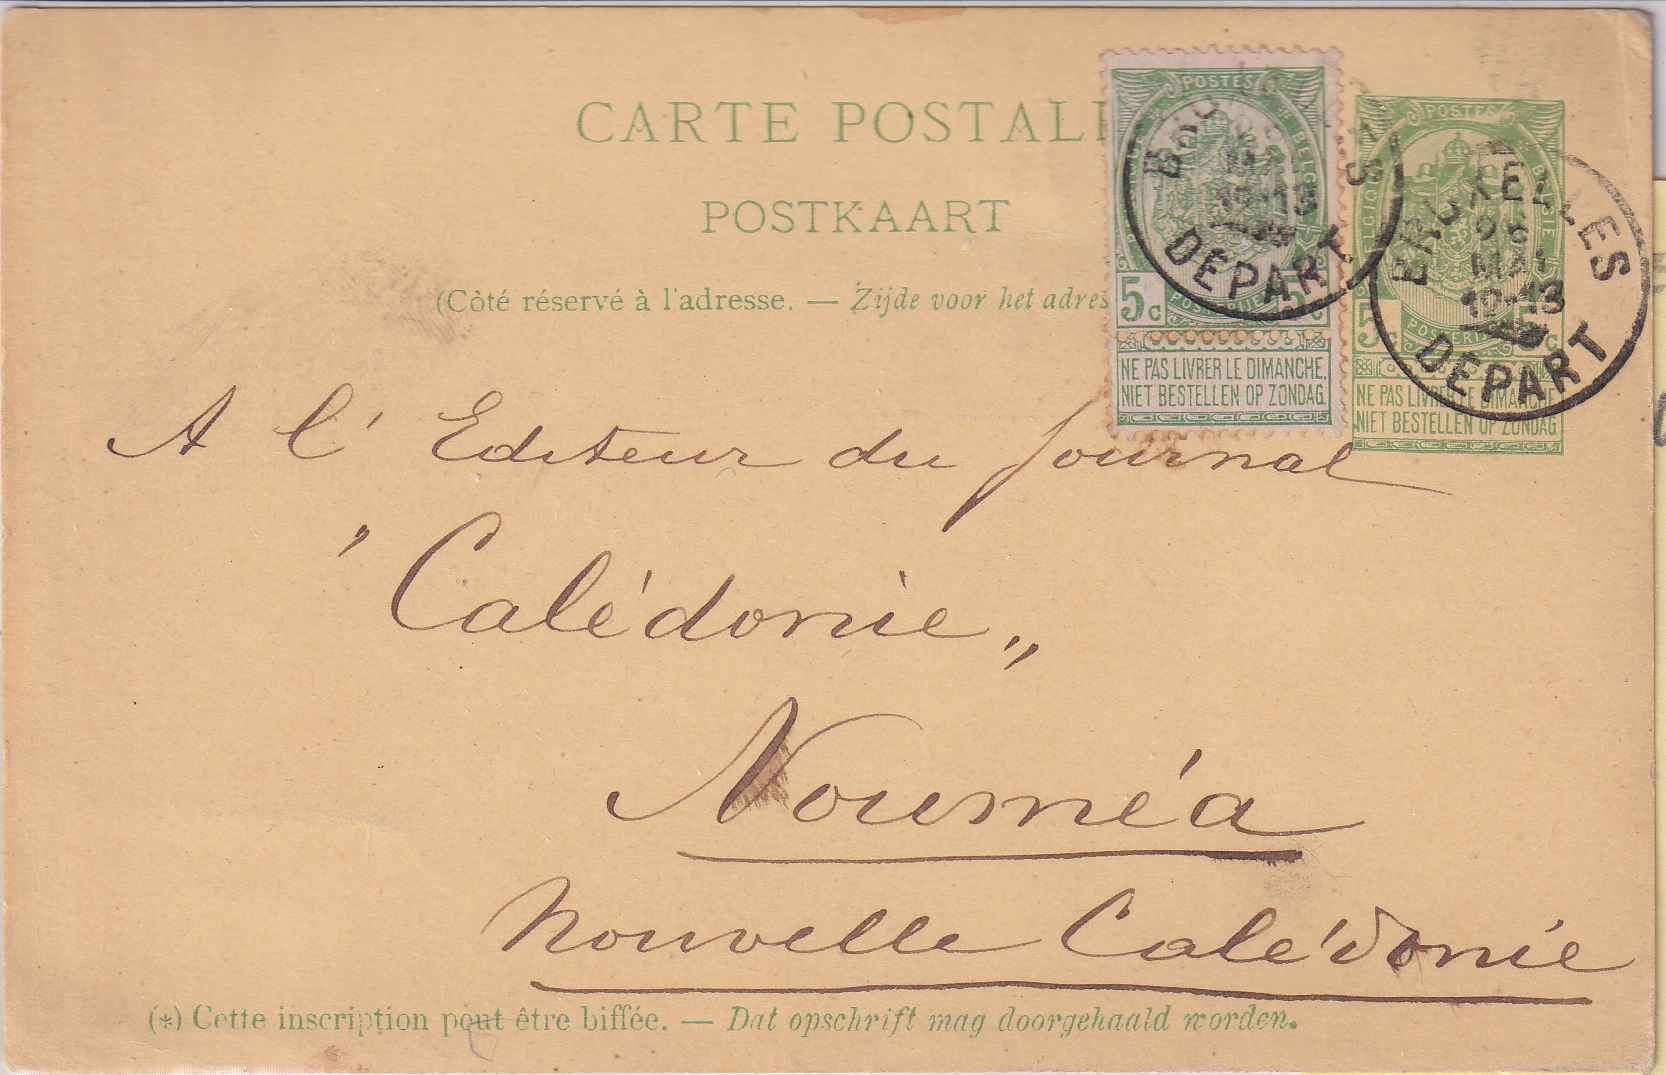 CARTE POSTALE
POSTKAART
(Côté réservé à l'adresse. — Zijde voor het adres
POSTES
BELGIQUE BELGIË
5c 5c
POSTERIJEN
NE PAS LIVRER LE DIMANCHE.
NIET BESTELLEN OP ZONDAG.
12-13
DÉPART
POSTES
BELGIQUE BELGIË
5c 5c
POSTERIJEN
NE PAS LIVRER LE DIMANCHE
NIET BESTELLEN OP ZONDAG
BRUXELLES
MAI
12-13
DÉPART
A l'Editeur du Journal
"Calédonie„
Nouméa
Nouvelle Calédonie
(*) Cette inscription peut être biffée. — Dat opschrift mag doorgehaald worden.